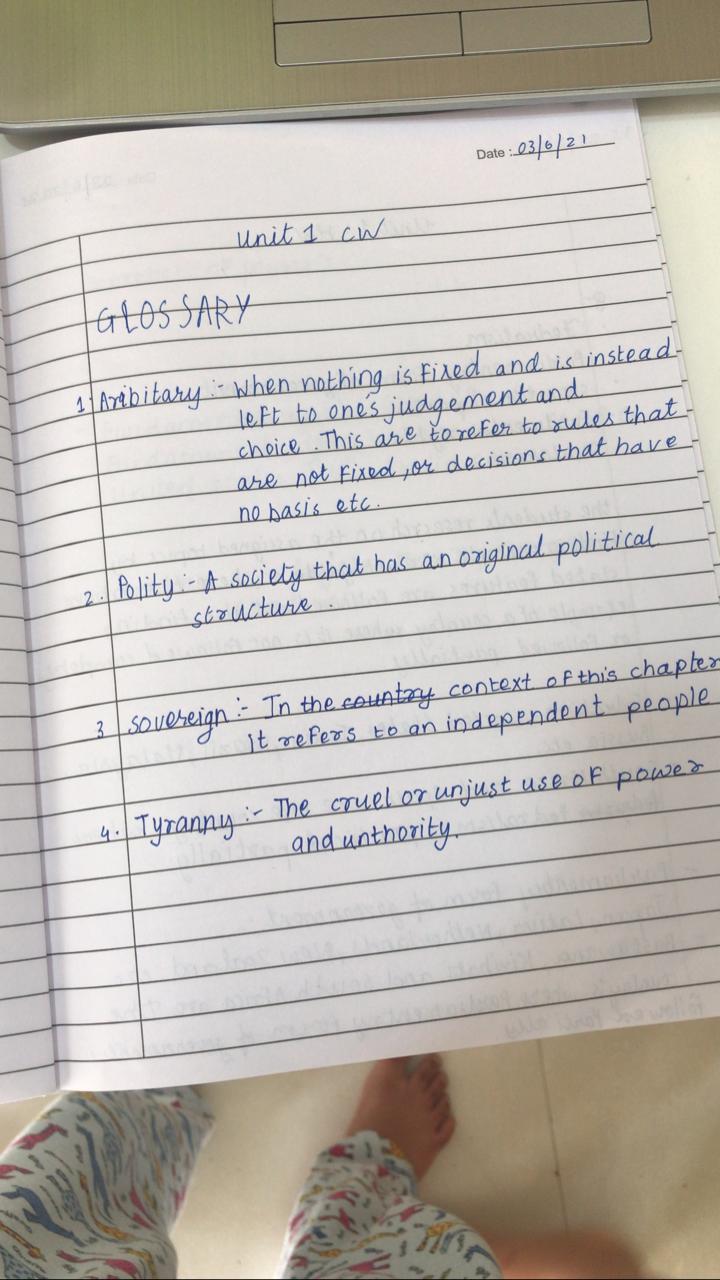 Date: 03/6/21
Unit 1 CW
GLOSSARY
1 Aribitary :- When nothing is fixed and is instead
left to one's judgement and
choice. This are to refer to rules that
are not fixed, or decisions that have
no basis etc.
2. Polity :- A society that has an original political
structure.
3 Sovereign :- In the country context of this chapter
it refers to an independent people
4. Tyranny :- The cruel or unjust use of power
and unthority.